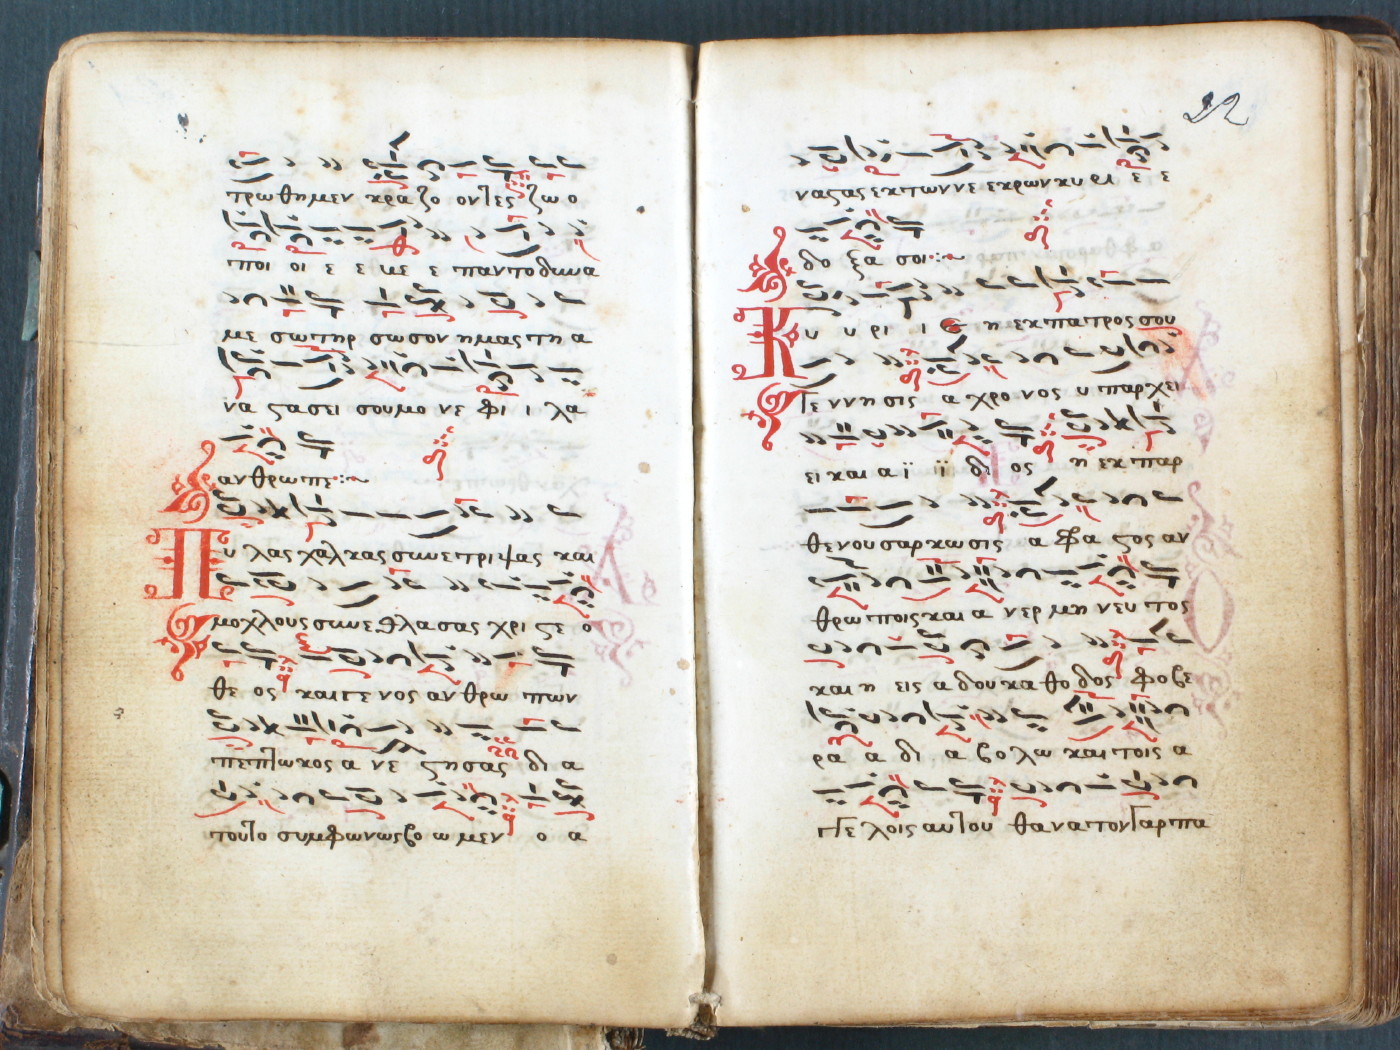 τρωθημεν κραζο οντες ζωο
ποι οι ε ε με ε παντοδυνα
με σωτηρ σωσον ημας τη α
να ϛασει σου μο νε φι ι λα
αν θρωπε
Πυ λας χαλκας συνετριψας και
μοχλους συνεθλασας χρι ϛε ο
θε ος και γε νος αν θρω πων
πεπτωκος α νε ϛησας δι α
τουτο συμφωνως βο ω μεν ο α
22
ναϛας εκ των νε εκρων κυ ρι ε ε
δο ξα σοι
Κυ υ ρι ι ε η εκ πατρος σου
γε ννησις α χρο νος υ παρχει
ει και α ϊ ϊ δι ος η εκ παρ
θενου σαρκωσις α φρα ϛος αν
θρωποις και α νερ μη νευ τος
και η εις αδου καθοδος φοβε
ρα α δι α βο λω και τοις α
γγε λοις αυτου θανατον γαρ πα